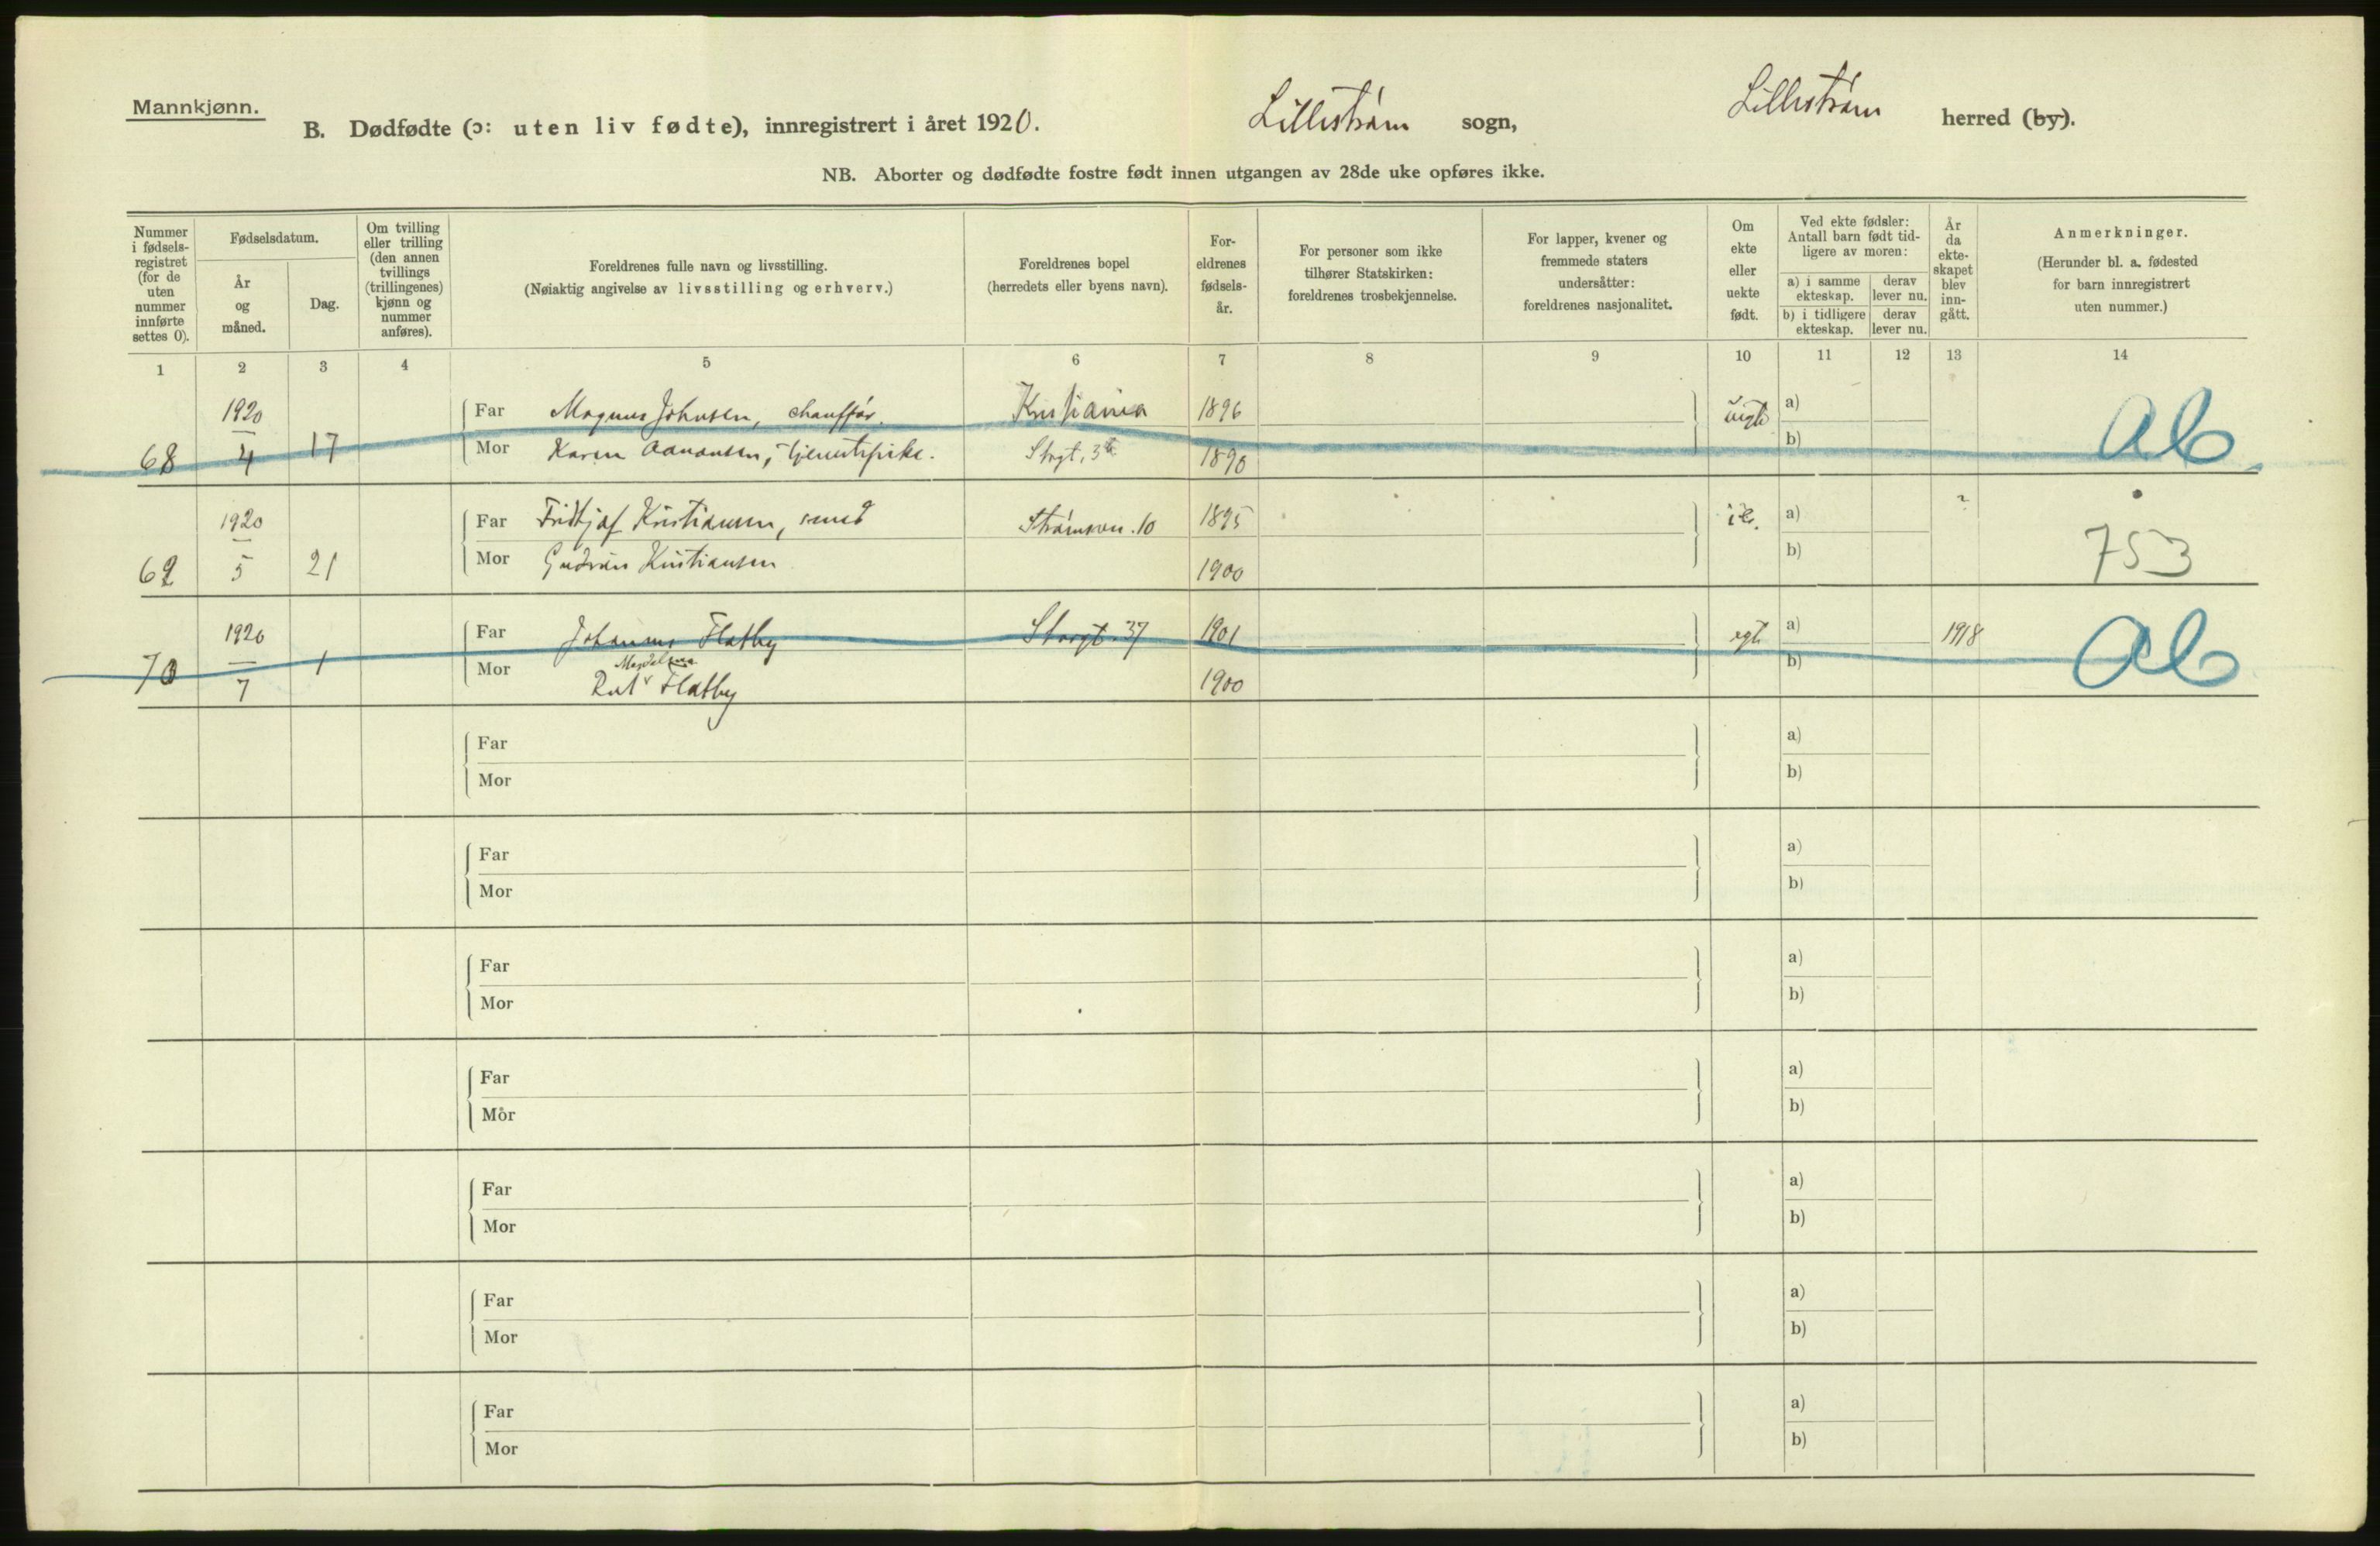 Mannkjønn.
B. Dødfødte (ɔ: uten liv fødte), innregistrert i året 1920. Lillestrøm sogn, Lillestrøm herred (by).
NB. Aborter og dødfødte fostre født innen utgangen av 28de uke opføres ikke.
Nummer i fødsels-registret (for de uten nummer innførte settes 0).
Fødselsdatum.
År og måned.
Dag.
Om tvilling eller trilling (den annen tvillings (trillingenes) kjønn og nummer anføres).
Foreldrenes fulle navn og livsstilling.
(Nøiaktig angivelse av livsstilling og erhverv.)
Foreldrenes bopel
(herredets eller byens navn).
For-eldrenes fødsels-år.
For personer som ikke tilhører Statskirken: foreldrenes trosbekjennelse.
For lapper, kvener og fremmede staters undersåtter: foreldrenes nasjonalitet.
Om ekte eller uekte født.
Ved ekte fødsler: Antall barn født tid-ligere av moren:
a) i samme ekteskap.
derav lever nu.
b) i tidligere ekteskap.
derav lever nu.
År da ekte-skapet blev inn-gått.
Anmerkninger.
(Herunder bl. a. fødested for barn innregistrert uten nummer.)
1 2 3 4 5 6 7 8 9 10 11 12 13 14
1920 Far Magnus Johnsen, chauffør. Kristiania 1896 uegte a)
68 4 17 Mor Karen Aanonsen, tjenestepike. Stgt, 1890 b) Ab
1920 Far Fridtjof Kristiansen, smed Strømsvn. 10 1895 a) ?
69 5 21 Mor Gudrun Kristiansen 1900 b) 753
1920 Far Johannes Flatby Storgt. 37 1901 egte a) 1918
70 7 1 Mor Rut Magdalena Flatby 1900 b) Ab
Far a)
Mor b)
Far a)
Mor b)
Far a)
Mor b)
Far a)
Mor b)
Far a)
Mor b)
Far a)
Mor b)
Far a)
Mor b)